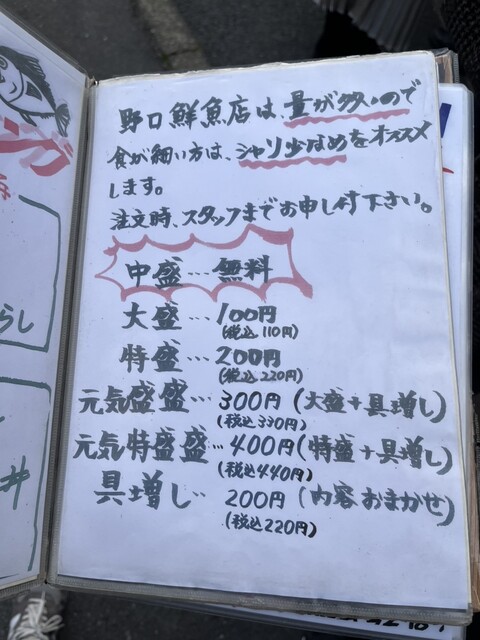 野口鮮魚店は、量が多いので
食が細い方は、シャリ少なめをオススメ
します。
注文時、スタッフまでお申し付下さい。
中盛…無料
大盛…100円
(税込110円)
特盛…200円
(税込220円)
元気盛盛…300円(大盛+具増し)
(税込330円)
元気特盛盛…400円(特盛+具増し)
(税込440円)
具増し…200円(内容おまかせ)
(税込220円)
ング
らし
丼